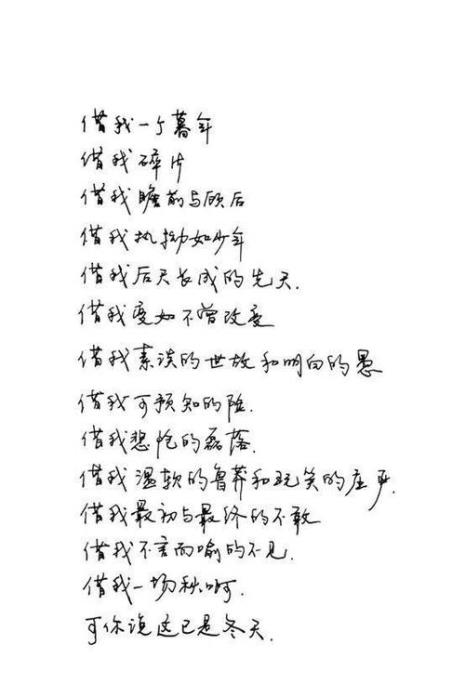 借我一个暮年
借我碎片
借我瞻前与顾后
借我执拗如少年
借我后天长成的先天.
借我变如不曾改变
借我素淡的世故和明白的愚
借我可预知的险.
借我悲怆的磊落.
借我温软的鲁莽和玩笑的庄严.
借我最初与最终的不敢
借我不言而喻的不见.
借我一场秋啊.
可你说这已是冬天.